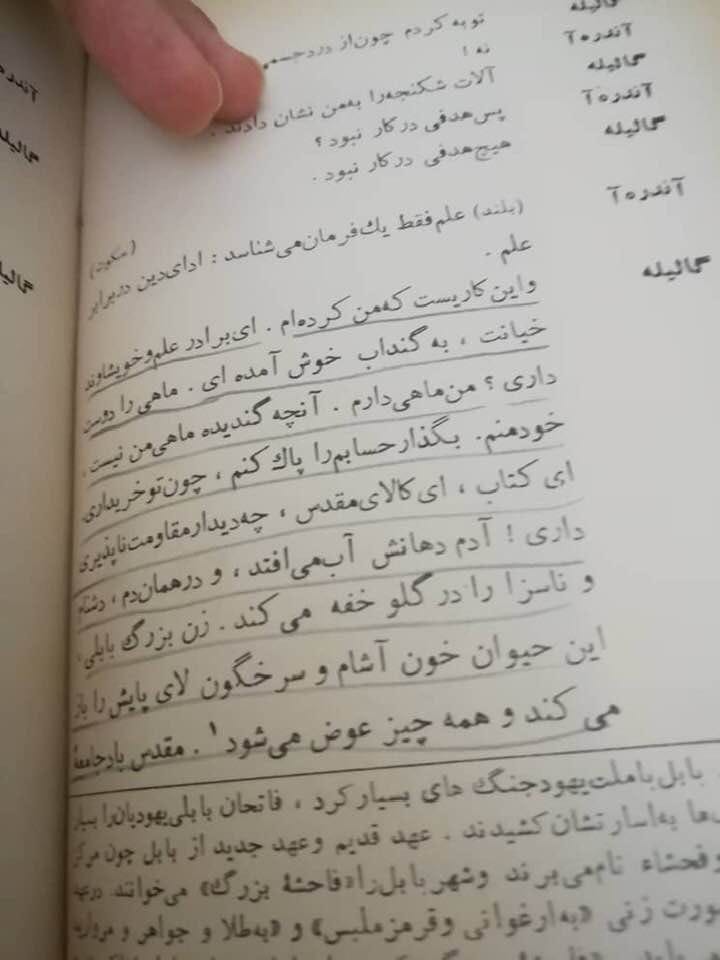 گالیله
توبه کردم چون از درد جسمی
آندره‌آ
نه !
گالیله
آلات شکنجه را به‌من نشان دادند .
آندره‌آ
پس هدفی در کار نبود ؟
گالیله
هیچ هدفی در کار نبود .
(سکوت)
آندره‌آ
(بلند) علم فقط یک فرمان می‌شناسد : ادای دین در برابر
علم .
گالیله
و این کاریست که من کرده‌ام . ای برادر علم و خویشاوند
خیانت ، به گنداب خوش آمده ای . ماهی را دوست
داری ؟ من ماهی دارم . آنچه گندیده ماهی من نیست ،
خود منم. بگذار حسابم را پاک کنم ، چون تو خریداری.
ای کتاب ، ای کالای مقدس ، چه دیدار مقاومت ناپذیری
داری ! آدم دهانش آب می‌افتد ، و در همان دم ، دشنام
و ناسزا را در گلو خفه می کند . زن بزرگ بابلی ،
این حیوان خون آشام و سرخگون لای پایش را باز
می کند و همه چیز عوض می‌شود۱ . مقدس باد جامعهٔ
بابل با ملت یهود جنگ های بسیار کرد ، فاتحان بابلی یهودیان را بسیار
به اسارتشان کشیدند . عهد قدیم و عهد جدید از بابل چون مرکز
فحشاء نام می‌برند و شهر بابل را «فاحشهٔ بزرگ» می‌خوانند. در عهد
صورت زنی «به ارغوانی و قرمز ملبس» و «به طلا و جواهر و مروارید